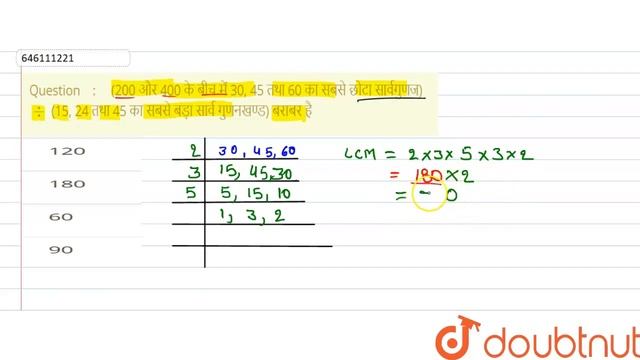 646111221
Question : (200 और 400 के बीच में 30, 45 तथा 60 का सबसे छोटा सार्वगुणज)
÷ (15, 24 तथा 45 का सबसे बड़ा सार्व गुणनखण्ड) बराबर है
120
180
60
90
2 30, 45, 60
3 15, 45, 30
5 5, 15, 10
1, 3, 2
LCM = 2×3×5×3×2
= 180×2
= 0
doubtnut